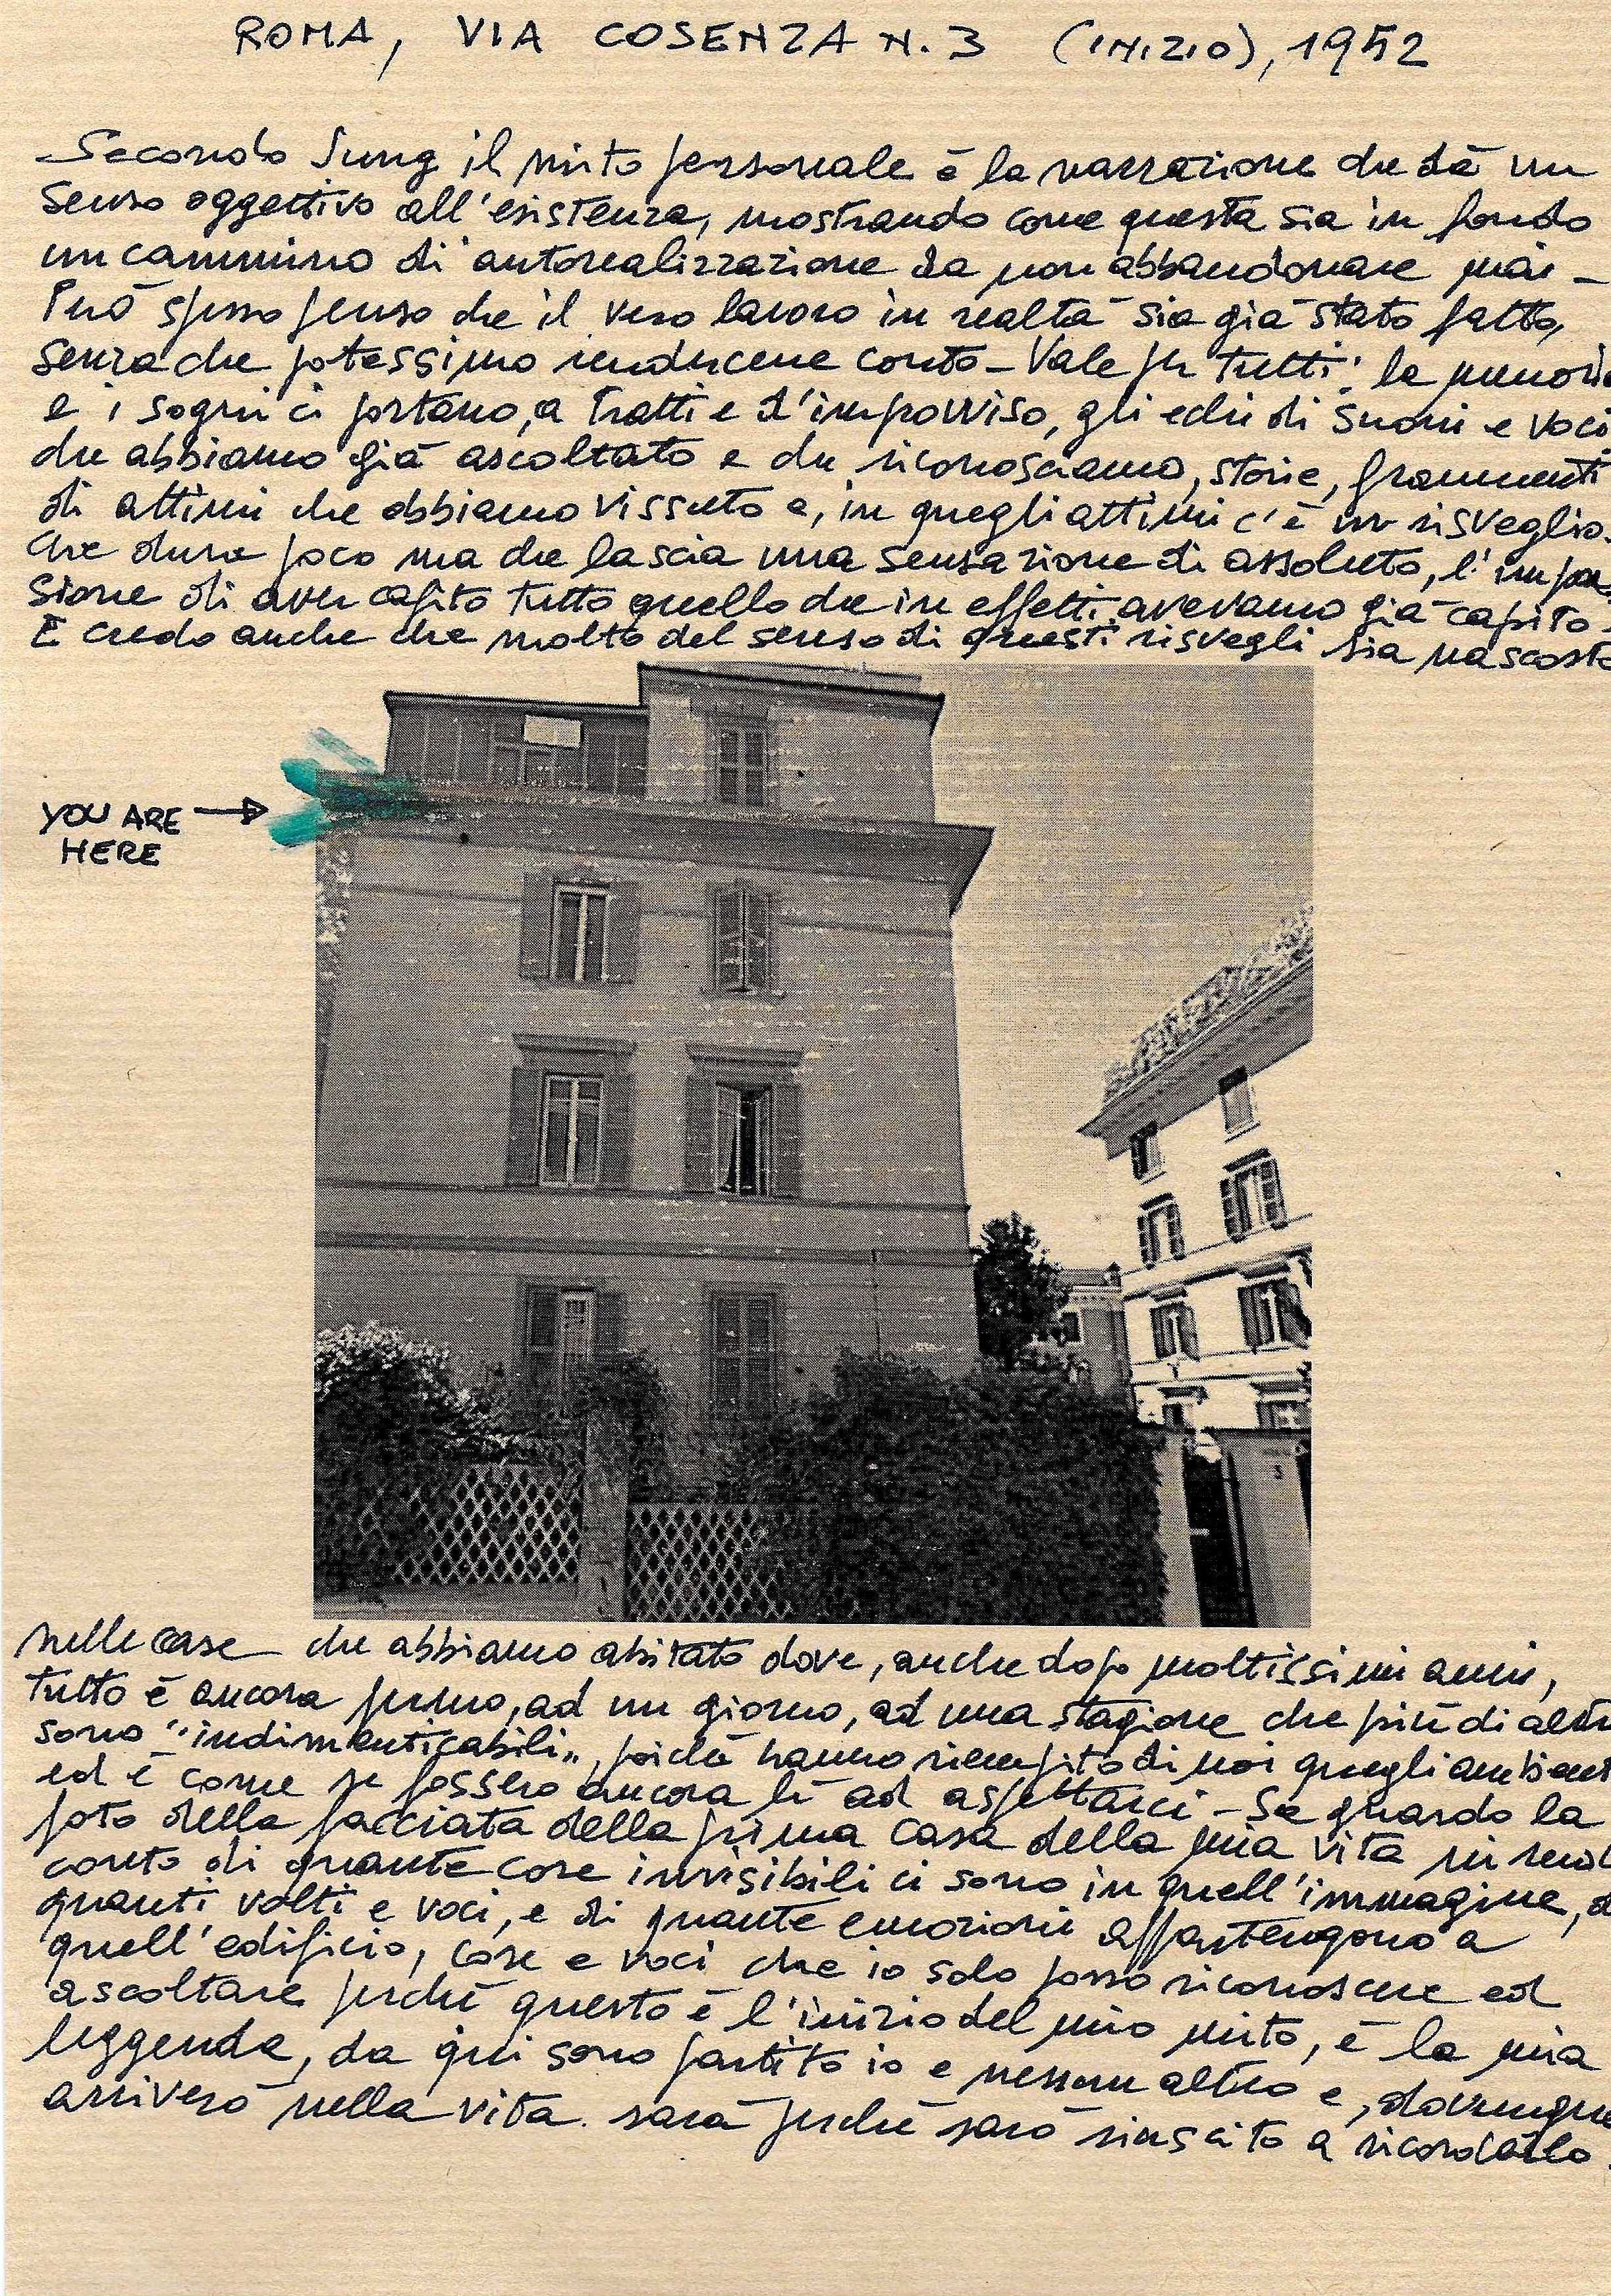 ROMA, VIA COSENZA N. 3 (INIZIO), 1952
Secondo Jung il mito personale è la narrazione che dà un
senso oggettivo all'esistenza, mostrando come questa sia in fondo
un cammino di autorealizzazione da non abbandonare mai –
Però spesso penso che il vero lavoro in realtà sia già stato fatto,
senza che potessimo rendercene conto – Vale per tutti: la memoria
e i sogni ci portano, a tratti e d'improvviso, gli echi di suoni e voci
che abbiamo già ascoltato e che riconosciamo, storie, frammenti
di attimi che abbiamo vissuto e, in quegli attimi c'è un risveglio.
che dura poco ma che lascia una sensazione di assoluto, l'impres
sione di aver capito tutto quello che in effetti avevamo già capito.
E credo anche che molto del senso di questi risvegli sia nascosto
YOU ARE
HERE
3
nelle case che abbiamo abitato dove, anche dopo moltissimi anni,
tutto è ancora fermo, ad un giorno, ad una stagione che più di altri
sono "indimenticabili", poiché hanno riempito di noi quegli ambienti
ed è come se fossero ancora lì ad aspettarci – Se guardo la
foto della facciata della prima casa della mia vita mi rendo
conto di quante cose invisibili ci sono in quell'immagine, di
quanti volti e voci, e di quante emozioni appartengono a
quell'edificio, cose e voci che io solo posso riconoscere ed
ascoltare perché questo è l'inizio del mio mito, è la mia
leggenda, da qui sono partito io e nessun altro e, dovunque
arriverò nella vita sarà perché sarò riuscito a ricordarlo.